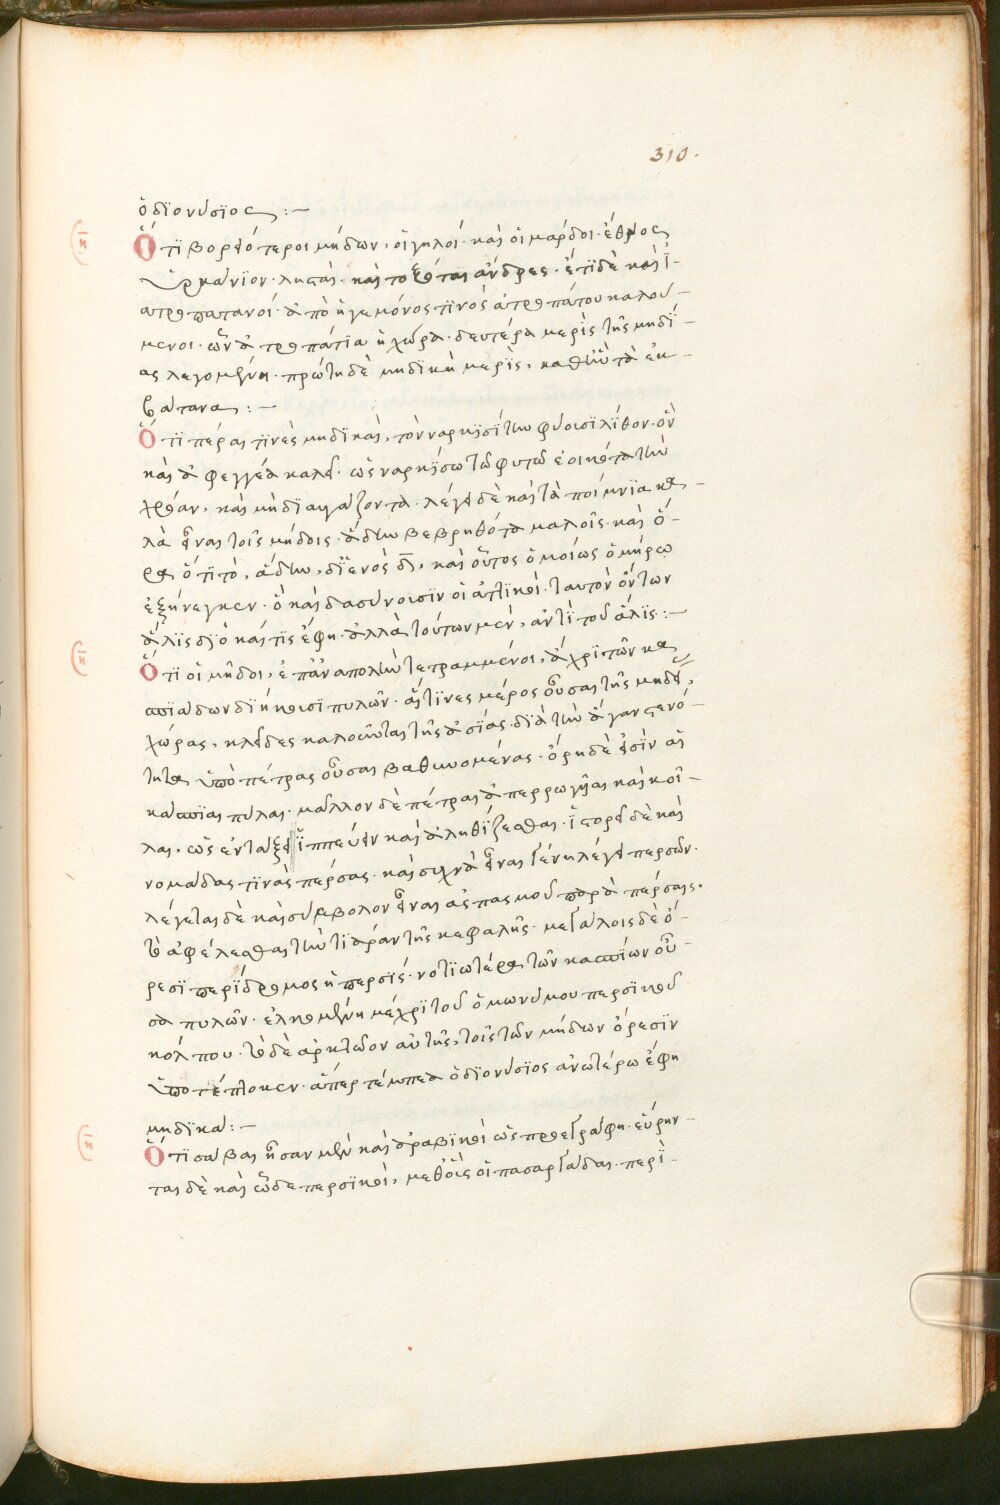 310.
ὁ διονύσϊος :—
Ὅτι βορϥότεροι μήδων, οἱ γηλοί· καὶ οἱ μάρδοι· ἔθνος
ὑρκάνϊον· λησταὶ· καὶ τοξόται ἄνδρες· ἔτϊ δὲ καὶ ἀ-
τροπατανοί· ἀπὸ ἡγεμόνος τϊνὸς ἀτροπάτου καλού-
μενοι· ὧν ἀτροπάτϊα ἡ χώρα· δευτέρα μερὶς τῆς μηδί-
ας λεγομένη· πρώτη δὲ μηδϊκὴ μερὶς, καθ' ἣν τὰ ἐκ-
βάτανα :—
Ὅτι πέτραι τϊνὲς μηδϊκαὶ, τὸν ναρκϊσίτην φύουσϊ λίθον· ὃν
καὶ ἀφεγγέα καλεῖ· ὡς ναρκίσσω τῶ φυτῶ ἐοικότα τὴν
χρόαν, καὶ μὴ διαυγάζοντα· λέγει δὲ καὶ τὰ ποίμνϊα κα-
λὰ εἶναι τοῖς μήδοις· ἄδην βεβρηθότα μαλοῖς· καὶ ὅ-
ρα ὅτι τὸ, ἄδην, δϊ' ἑνὸς δ, καὶ οὗτος ὁμοίως ὁμήρω
ἐξήνεγκεν· ὃ καὶ δασύνουσϊν οἱ ἀττϊκοὶ· ταυτὸν ὄντων
ἅλϊς δϊὸ καί τϊς ἔφη· ἀλλὰ τούτων μὲν, ἀντὶ τοῦ ἅλϊς :—
Ὅτι οἱ μῆδοι, ἐπ' ἀνατολὴν τετραμμένοι, ἄχρϊ τῶν κα-
σπϊάδων δϊήκουσϊ πυλῶν· αἵτϊνες μέρος οὖσαι τῆς μηδικῆς
χώρας, κλεῖδες καλοῦνται τῆς ἀσίας· δϊὰ τὴν ἄγαν στενό-
τητα ὑπὸ πέτρας οὖσαι βαθυνομένας· ὄρη δὲ εἰσὶν αἱ
κάσπϊαι πύλαι· μᾶλλον δὲ πέτραι ἀπερρωγῆαι καὶ κοῖ-
λαι, ὡς ἐντάξει ἱππεύειν καὶ ἀληθίζεσθαι· ἱστορεῖ δὲ καὶ
νομάδας τϊνὰς πέρσας· καὶ συχνὰ εἶναι γένη λέγει περσῶν·
λέγεται δὲ καὶ σύμβολον εἶναι ἀσπασμοῦ παρὰ πέρσαις,
τὸ ἀφέλεσθαι τὴν τϊάραν τῆς κεφαλῆς· μεγάλοις δὲ ὄ-
ρεσϊ περίδρομος ἡ περσϊς· νοτϊωτέρα τῶν κασπίων οὖ-
σα πυλῶν· ἑλκομένη μέχρϊ τοῦ ὁμωνύμου περσϊκοῦ
κόλπου· τὸ δὲ ἀρκτῶον αὐτῆς, τοῖς τῶν μήδων ὄρεσϊν
ὑποπέπτωκεν· ἅπερ τέμπεα ὁ δϊονύσϊος ἀνωτέρω ἔφη
μηδϊκά :—
Ὅτι σάβαι ἦσαν μὲν καὶ ἀραβϊκοὶ ὡς προεγράφη· εὕρην-
ται δὲ καὶ ὧδε περσϊκοὶ, μεθ' οἷς οἱ πασαργάδαι· περὶ-